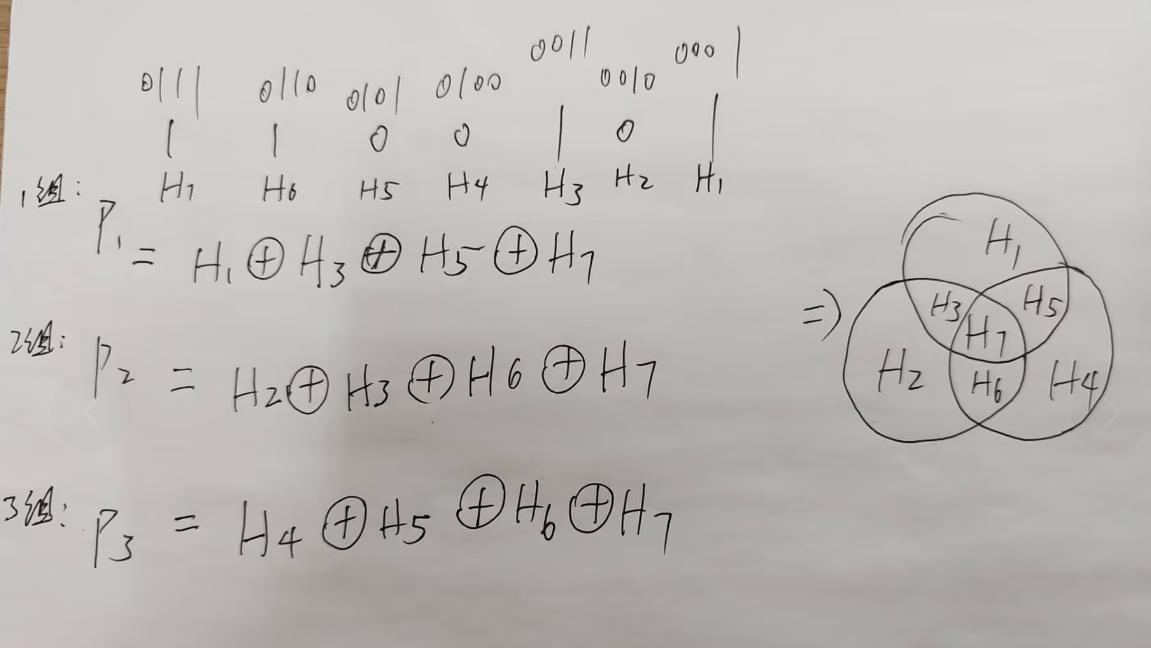 0111 0110 0101 0100 0011 0010 0001
1 1 0 0 1 0 1
H7 H6 H5 H4 H3 H2 H1
1组:
P1 = H1 ⊕ H3 ⊕ H5 ⊕ H7
2组:
P2 = H2 ⊕ H3 ⊕ H6 ⊕ H7
3组:
P3 = H4 ⊕ H5 ⊕ H6 ⊕ H7
⇒
H1
H3 H5
H7
H2 H6 H4